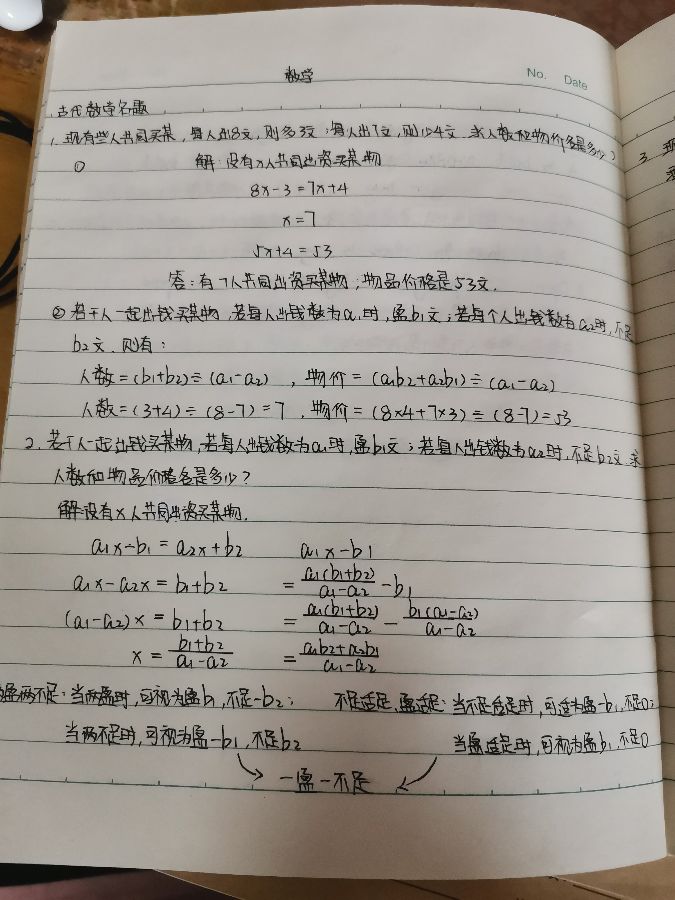 数学
No.
Date
古代数学名题
1. 现有些人共同买某，每人出8文，则多3文；每人出7文，则少4文。求人数和物价各是多少？
① 解：设有x人共同出资买某物
8x-3=7x+4
x=7
5x+4=53
答：有7人共同出资买某物；物品价格是53文.
② 若干人一起出钱买某物，若每人出钱数为a₁时，盈b₁文；若每个人出钱数为a₂时，不足
b₂文，则有：
人数=(b₁+b₂)÷(a₁-a₂)，物价=(a₁b₂+a₂b₁)÷(a₁-a₂)
人数=(3+4)÷(8-7)=7，物价=(8×4+7×3)÷(8-7)=53
2. 若干人一起出钱买某物，若每人出钱数为a₁时，盈b₁文；若每人出钱数为a₂时，不足b₂文 求
人数和物品价格各是多少？
解：设有x人共同出资买某物.
a₁x-b₁=a₂x+b₂ a₁x-b₁
a₁x-a₂x=b₁+b₂ =a₁(b₁+b₂)/(a₁-a₂)-b₁
(a₁-a₂)x=b₁+b₂ =a₁(b₁+b₂)/(a₁-a₂)-b₁(a₁-a₂)/(a₁-a₂)
x=(b₁+b₂)/(a₁-a₂) =(a₁b₂+a₂b₁)/(a₁-a₂)
盈两不足：当两盈时，可视为盈b₁，不足-b₂； 不足适足、盈适足：当不足适足时，可适为盈-b₁，不足0；
当两不足时，可视为盈-b₁，不足b₂ 当盈适足时，可视为盈b₁，不足0
一盈一不足
3. 现